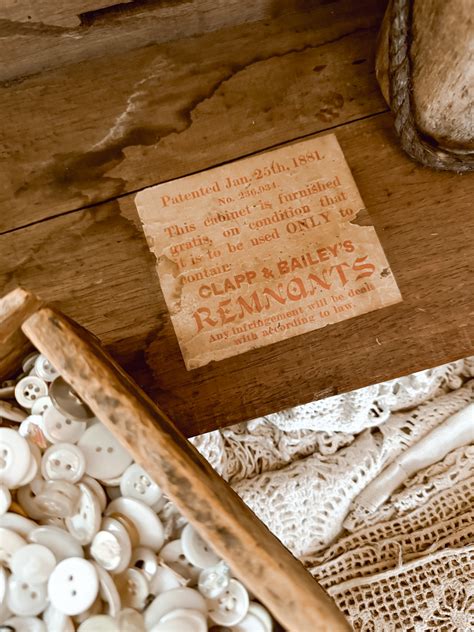 Patented Jan. 25th, 1881.
No. 236,934.
This cabinet is furnished
gratis, on condition that
it is to be used ONLY to
contain
CLAPP & BAILEY'S
REMNANTS
Any infringement will be dealt
with according to law.